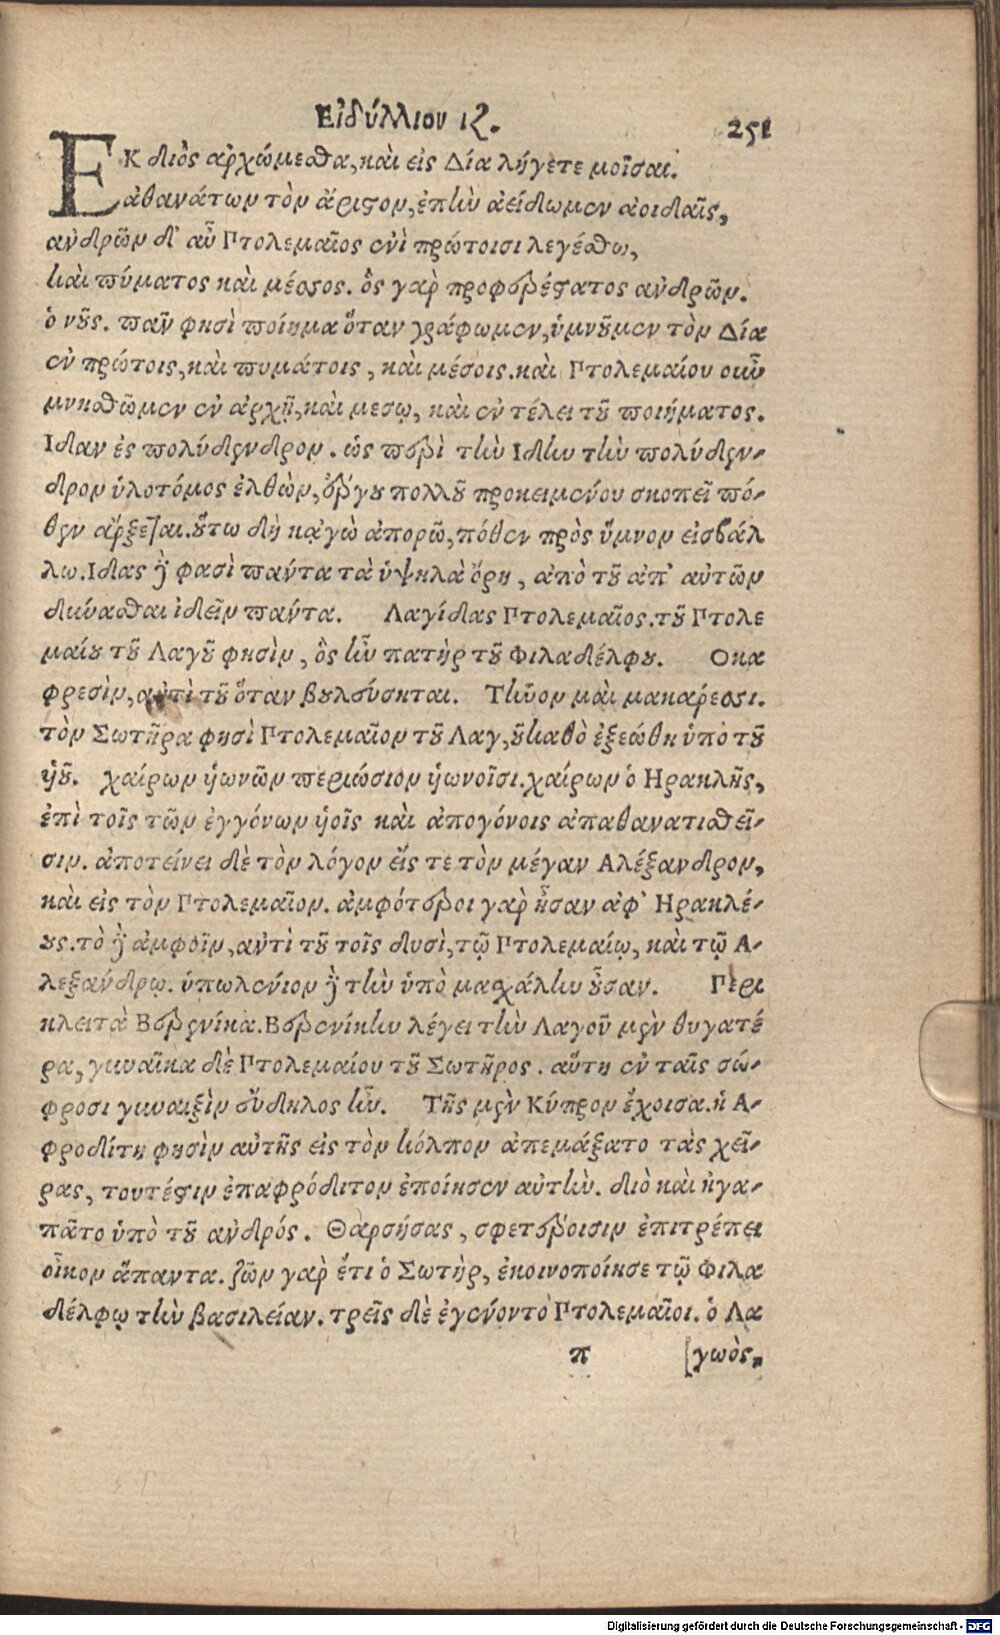 Εἰδύλλιον ιζ.
251
ΕΚ διὸς ἀρχώμεσθα, καὶ εἰς Δία λήγετε μοῖσαι.
ἀθανάτων τὸν ἄριστον, ἐπὴν ἀείδωμεν ἀοιδαῖς,
ἀνδρῶν δ' αὖ Πτολεμαῖος ἐνὶ πρώτοισι λεγέσθω,
καὶ πύματος καὶ μέσσος. ὃς γὰρ προφερέστατος ἀνδρῶν.
ὁ νοῦς. πᾶν φησὶ ποίημα ὅταν γράφωμεν, ὑμνοῦμεν τὸν Δία
ἐν πρώτοις, καὶ πυμάτοις, καὶ μέσοις. καὶ Πτολεμαίου οὖν
μνησθῶμεν ἐν ἀρχῇ, καὶ μεσῳ, καὶ ἐν τέλει τοῦ ποιήματος.
Ιδαν ἐς πολύδενδρον. ὡς περὶ τὴν Ιδην τὴν πολύδεν-
δρον ὑλοτόμος ἐλθὼν, ἔργου πολλοῦ προκειμένου σκοπεῖ πό-
θεν ἄρξεται. οὕτω δὴ κᾀγὼ ἀπορῶ, πόθεν πρὸς ὕμνον εἰσβάλ
λω. Ιδας δὲ φασὶ πάντα τὰ ὑψηλὰ ὄρη, ἀπὸ τοῦ ἀπ' αὐτῶν
δύνασθαι ἰδεῖν πάντα. Λαγίδας Πτολεμαῖος. τοῦ Πτολε
μαίου τοῦ Λαγοῦ φησὶν, ὃς ἦν πατὴρ τοῦ Φιλαδέλφου. Οκα
φρεσὶν, ἀντὶ τοῦ ὅταν βουλεύσηται. Τῆνον καὶ μακάρεσσι.
τὸν Σωτῆρα φησὶ Πτολεμαῖον τοῦ Λαγ, οῦκαθὸ ἐξεώθη ὑπὸ τοῦ
ὑοῦ. χαίρων υἱωνῶν περιώσιον υἱωνοῖσι. χαίρων ὁ Ηρακλῆς,
ἐπὶ τοῖς τῶν ἐγγόνων υἱοῖς καὶ ἀπογόνοις ἀπαθανατισθεῖ-
σιν. ἀποτείνει δὲ τὸν λόγον εἴς τε τὸν μέγαν Αλέξανδρον,
καὶ εἰς τὸν Πτολεμαῖον. ἀμφότεροι γὰρ ἦσαν ἀφ' Ηρακλέ-
ους. τὸ δὲ ἀμφοῖν, ἀντὶ τοῦ τοῖς δυσὶ, τῷ Πτολεμαίῳ, καὶ τῷ Α-
λεξάνδρῳ. ὑπωλένιον δὲ τὴν ὑπὸ μασχάλην οὖσαν. Περι
κλειτὰ Βερενίκα. Βερενίκην λέγει τὴν Λαγοῦ μὲν θυγατέ
ρα, γυναῖκα δὲ Πτολεμαίου τοῦ Σωτῆρος. αὕτη ἐν ταῖς σώ-
φροσι γυναιξὶν εὔδηλος ἦν. Τῆς μὲν Κύπρον ἔχοισα. ἡ Α-
φροδίτη φησὶν αὐτῆς εἰς τὸν κόλπον ἀπεμάξατο τὰς χεῖ-
ρας, τουτέστιν ἐπαφρόδιτον ἐποίησεν αὐτὴν. διὸ καὶ ἠγα-
πᾶτο ὑπὸ τοῦ ἀνδρός. Θαρσήσας, σφετέροισιν ἐπιτρέπει
οἶκον ἅπαντα. ζῶν γὰρ ἔτι ὁ Σωτὴρ, ἐκοινοποίησε τῷ Φιλα
δέλφῳ τὴν βασιλείαν. τρεῖς δὲ ἐγένοντο Πτολεμαῖοι. ὁ Λα
π [γωὸς,
Digitalisierung gefördert durch die Deutsche Forschungsgemeinschaft - DFG